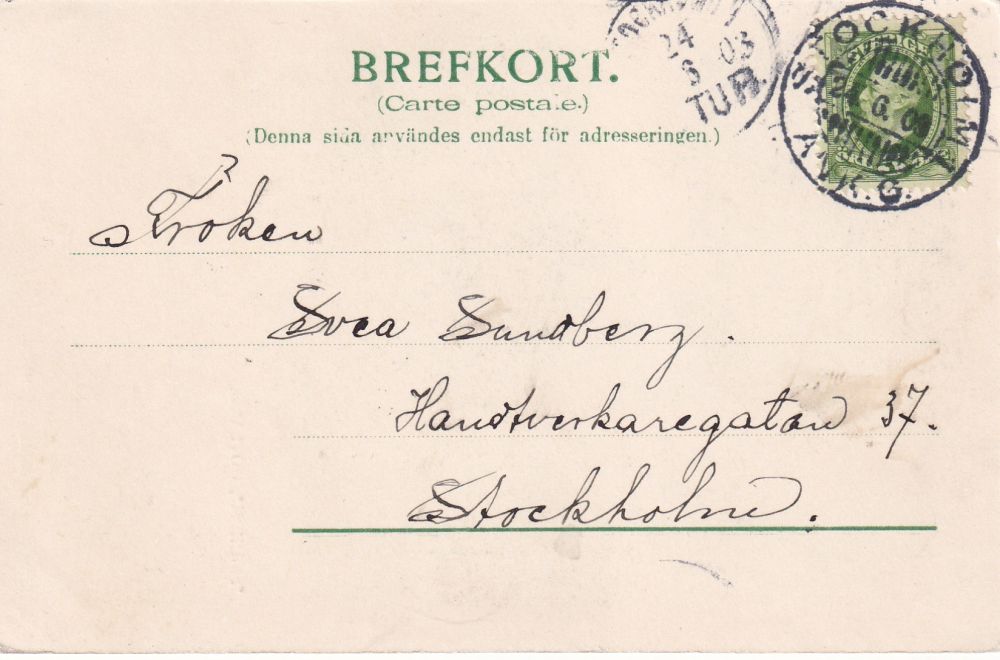 BREFKORT.
(Carte postale.)
(Denna sida användes endast för adresseringen.)
24
6 03
TUR.
STOCKHOLM 1
6.
ANK.G.
SVERIGE
Fröken
Svea Sundberg.
Handtverkaregatan 37.
Stockholm.